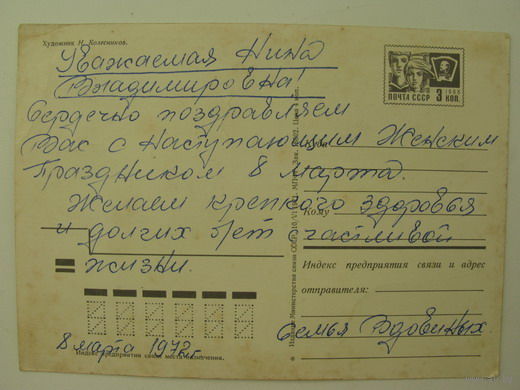 Художник Н. Колесников.
Уважаемая Нина
Владимировна!
Сердечно поздравляем
Вас с наступающим Женским
Праздником 8 марта.
Желаем крепкого здоровья
и долгих лет счастливой
жизни.
Семья Вдовиных.
8 марта 1972 г.
1966
ПОЧТА СССР 3 КОП.
Кому
Индекс предприятия связи и адрес
отправителя:
Индекс предприятия связи места назначения.
Министерство связи СССР